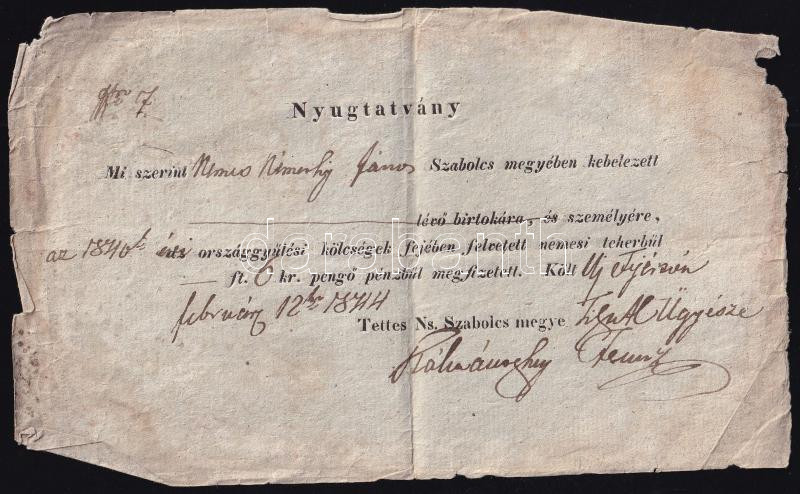 7.
Nyugtatvány
Mi szerint Nemes János Szabolcs megyében kebelezett
lévő birtokára, és személyére,
az 1840k évi országgyűlési kölcségek fejében felvetett nemesi teherbűl
ft. 6 kr. pengő pénzbűl megfizetett. Költ Uj
február 12kén 1844
Tettes Ns. Szabolcs megye Ügyésze
darabanth